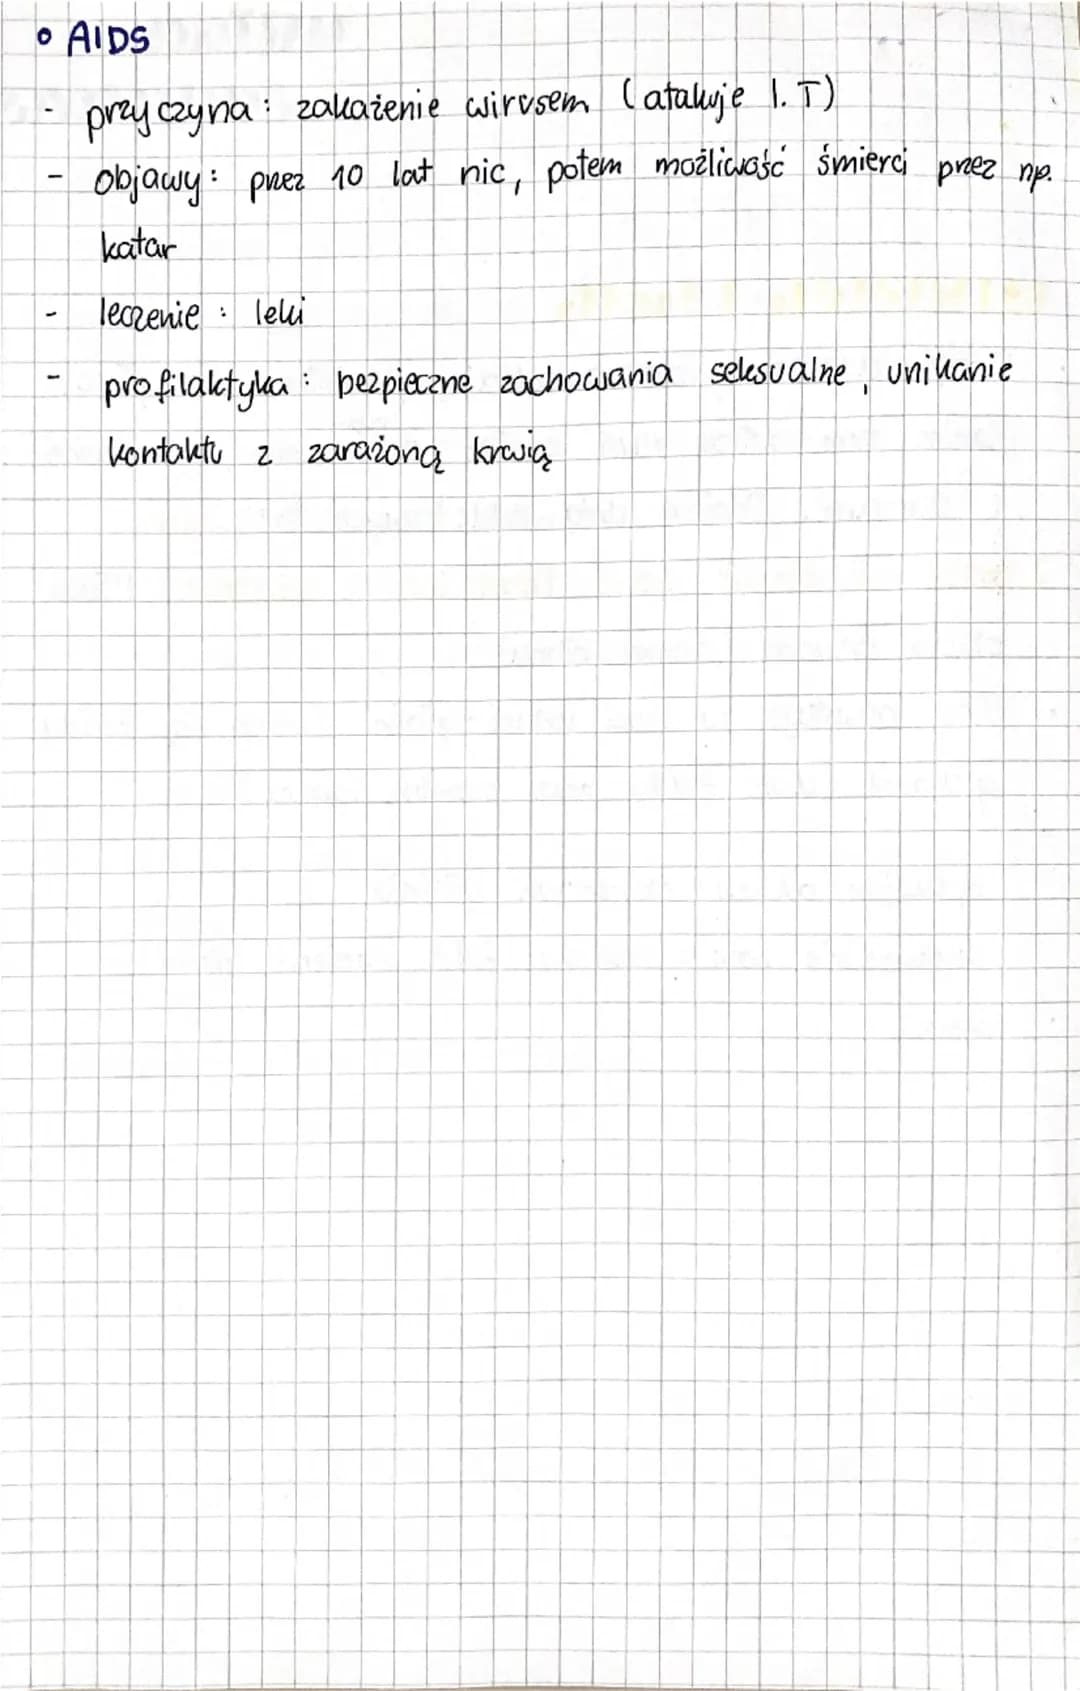 • AIDS
- przyczyna: zakażenie wirusem (atakuje l. T)
- objawy: przez 10 lat nic, potem możliwość śmierci przez np.
katar
- leczenie: leki
- profilaktyka: bezpieczne zachowania seksualne, unikanie
kontaktu z zarażoną krwią